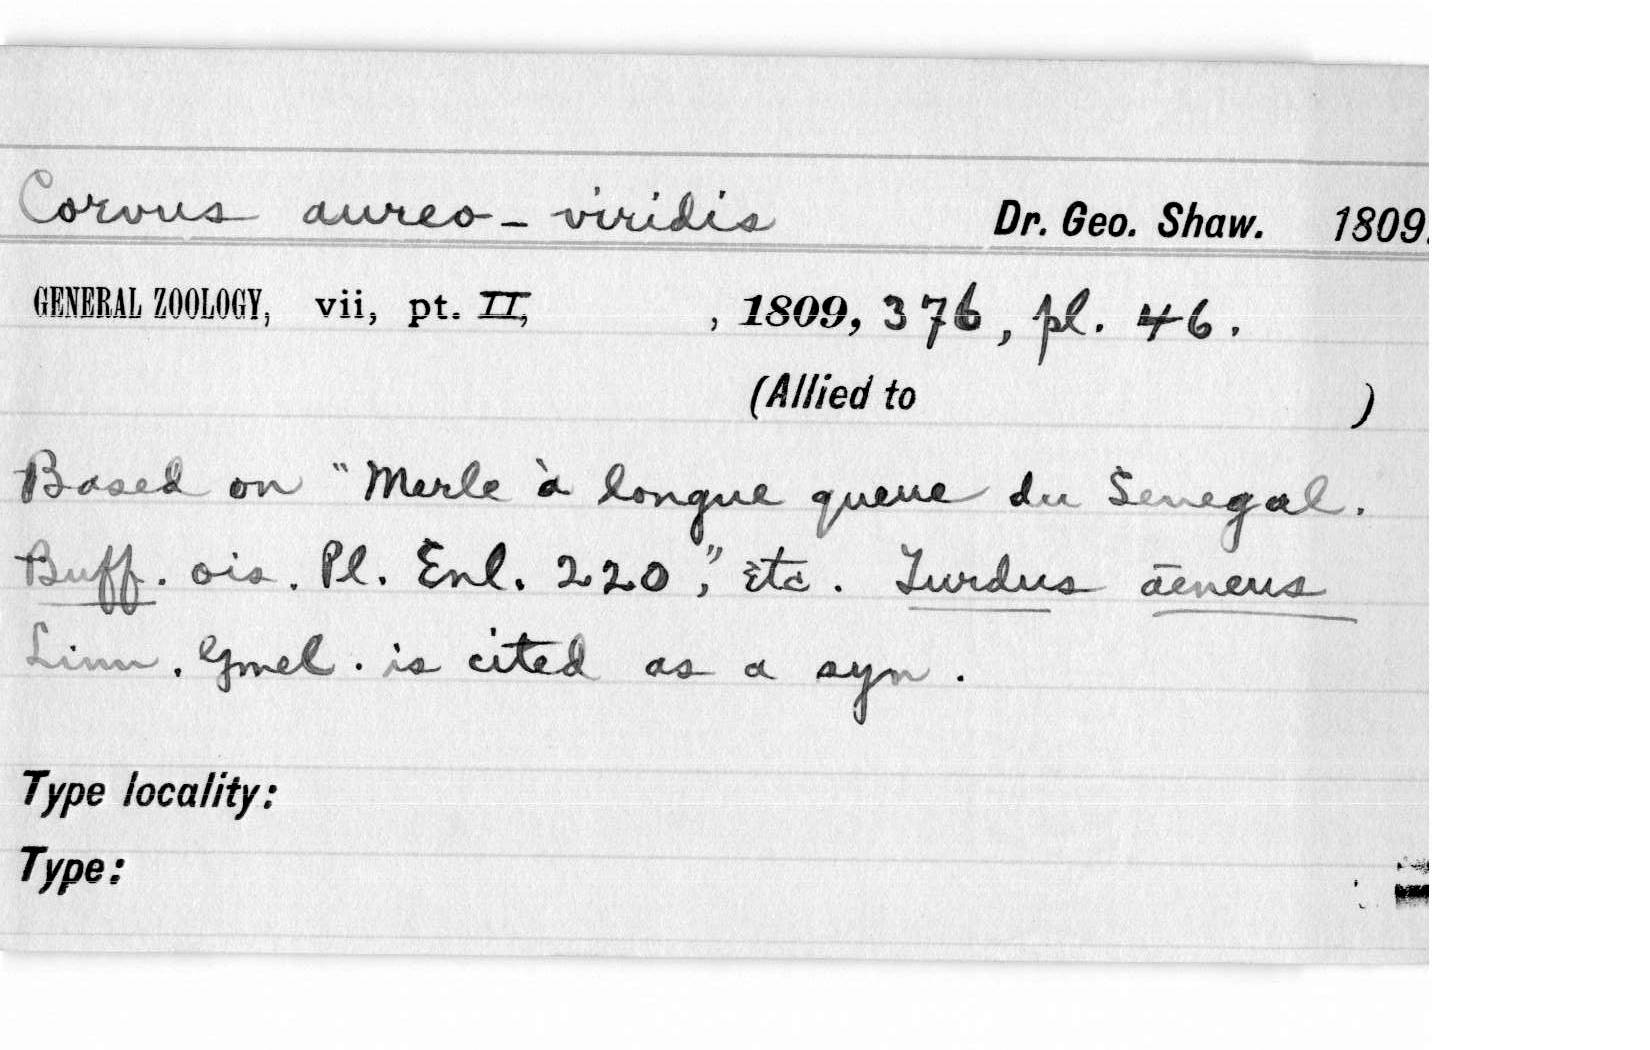 Corvus aureo-viridis Dr. Geo. Shaw. 1809.
GENERAL ZOOLOGY, vii, pt. II, , 1809, 376, pl. 46.
(Allied to )
Based on "Merle à longue queue du Senegal.
Buff. ois. Pl. Enl. 220," etc. Turdus äeneus
Linn. Gmel. is cited as a syn.
Type locality:
Type: